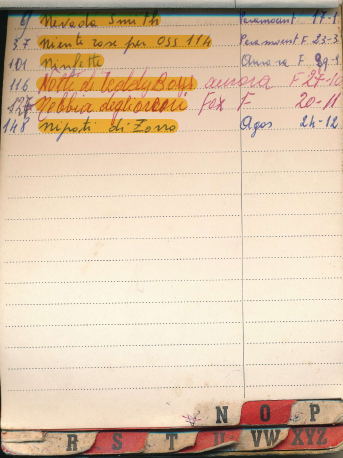 9 Nevada Smith Paramount 17-1
37 Niente rose per OSS 114 Paramount F 23-3
101 Ninfette Aurora F 29-1
116 Notti di Teddy Boys aurora F 27-10
127 Nebbia degli orrori Fox F 20-11
148 Nipoti di Zorro Agos 24-12
N O P
R S T U VW XYZ